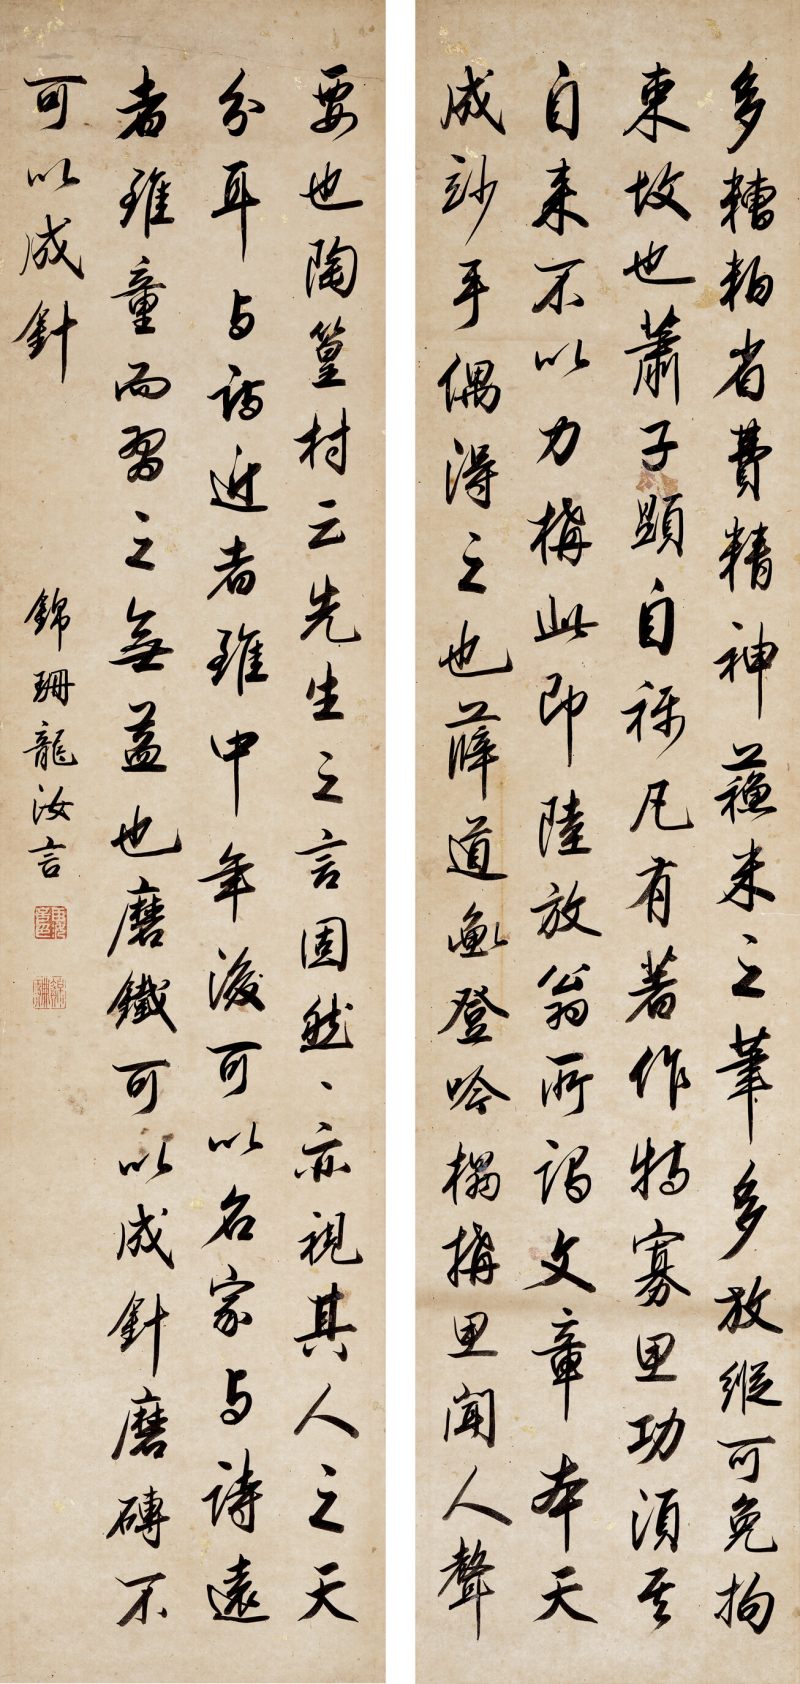 多糟粕省費精神蘓米之筆多放縱可免拘
束故也蕭子顯自稱凡有著作特寡思功須其
自来不以力構此即陸放翁所謂文章本天
成妙手偶得之也薛道衡登吟榻構思聞人聲
要也陶篁村云先生之言固然、亦視其人之天
分耳与詩近者雖中年後可以名家与詩遠
者雖童而習之無益也磨鐵可以成針磨磚不
可以成針
錦珊龍汝言